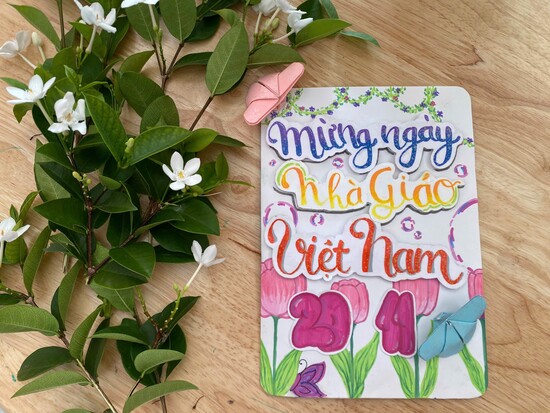 Mừng ngay
Nhà Giáo
Việt Nam
20 11